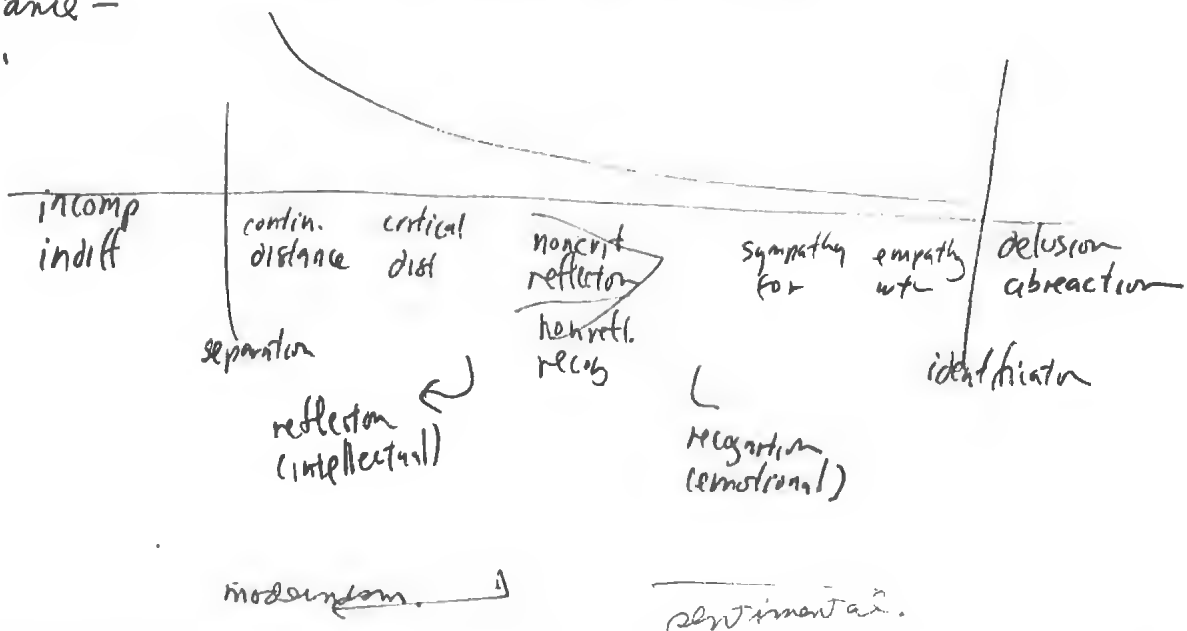 ance —
incomp
indiff
contin.
distance
critical
dist
noncrit
reflection
nonrefl.
recog
sympathy
for
empathy
with
delusion
abreaction
separation
identification
reflection
(intellectual)
recognition
(emotional)
modernism.
sentimental.